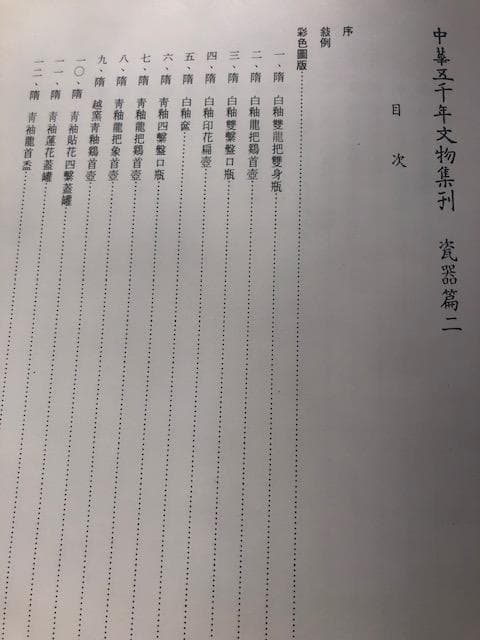 中華五千年文物集刊 瓷器篇二
目次
序
敍例
彩色圖版
一、隋 白釉雙龍把雙身瓶
二、隋 白釉龍把鷄首壺
三、隋 白釉雙繫盤口瓶
四、隋 白釉印花扁壺
五、隋 白釉奩
六、隋 靑釉四繫盤口瓶
七、隋 靑釉龍把鷄首壺
八、隋 靑釉龍把象首壺
九、隋 越窯靑釉鷄首壺
一〇、隋 靑袖貼花四繫蓋罐
一一、隋 靑袖蓮花蓋罐
一二、隋 靑袖龍首盉